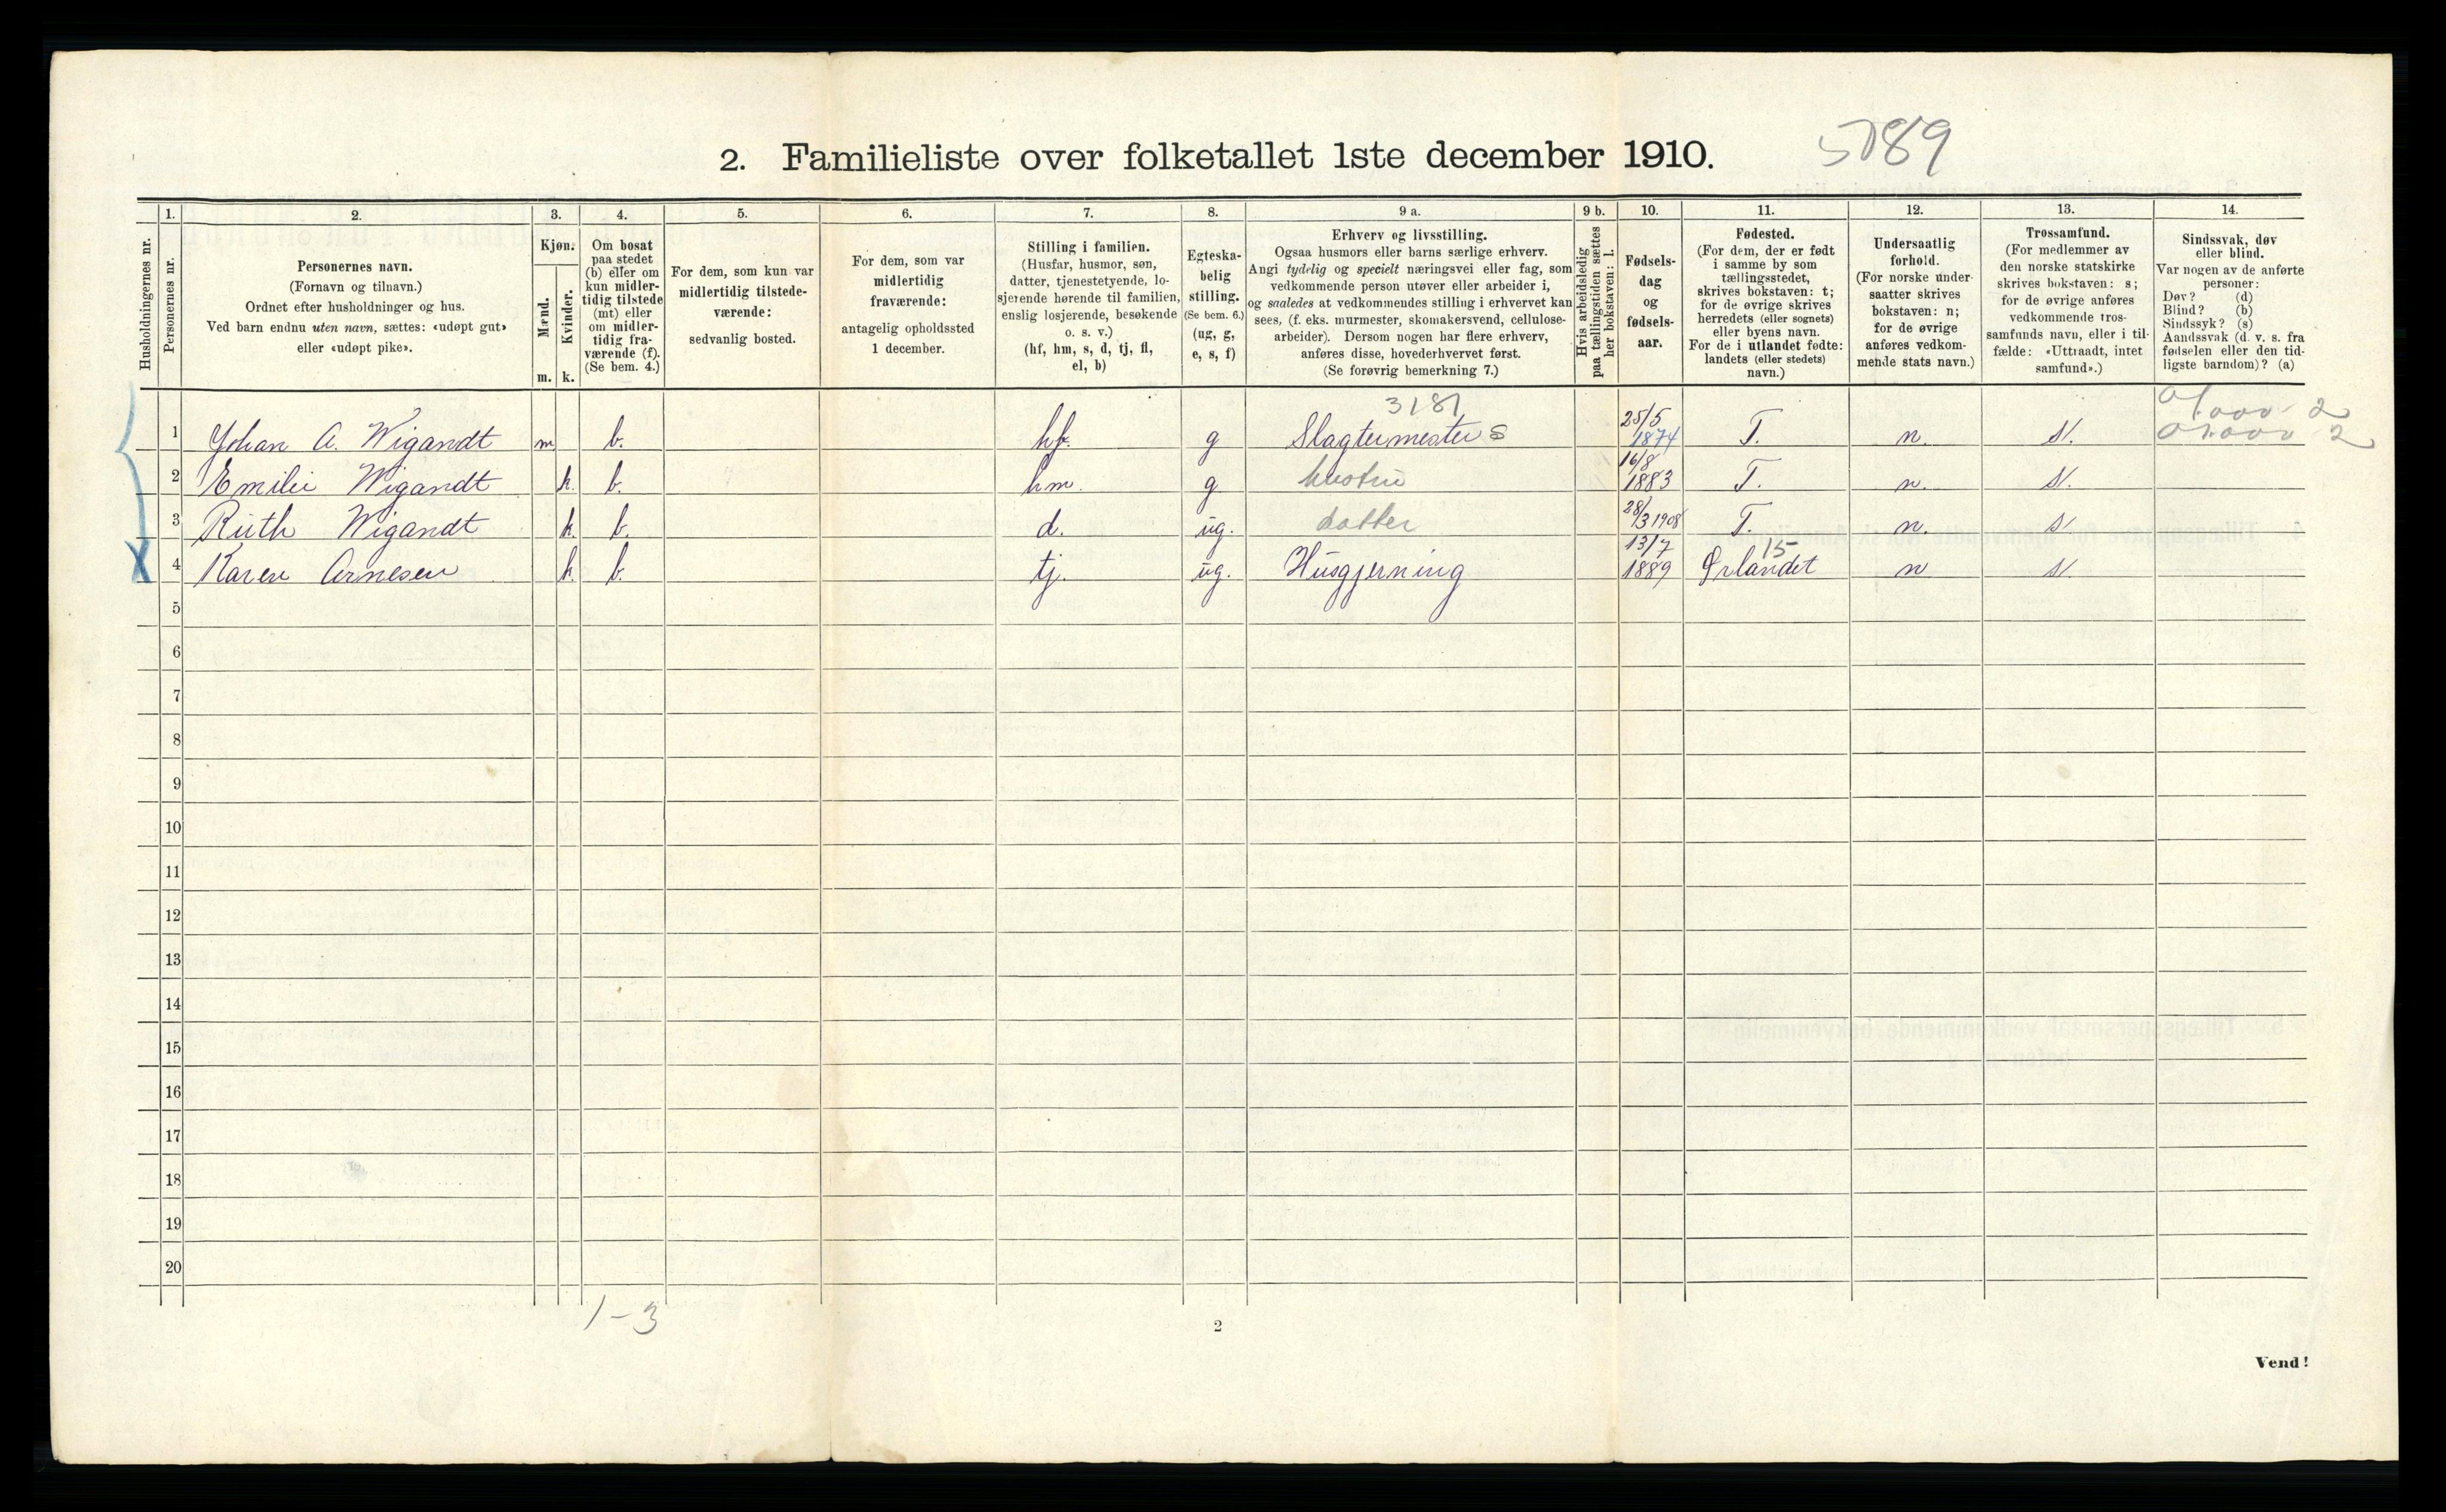 2. Familieliste over folketallet 1ste december 1910.
5789
1. 2. 3. 4. 5. 6. 7. 8. 9 a. 9 b. 10. 11. 12. 13. 14.
Husholdningernes nr.
Personernes nr.
Personernes navn.
(Fornavn og tilnavn.)
Ordnet efter husholdninger og hus.
Ved barn endnu uten navn, sættes: «udøpt gut»
eller «udøpt pike».
Kjøn.
Mænd.
Kvinder.
m. k.
Om bosat
paa stedet
(b) eller om
kun midler-
tidig tilstede
(mt) eller
om midler-
tidig fra-
værende (f).
(Se bem. 4.)
For dem, som kun var
midlertidig tilstede-
værende:
sedvanlig bosted.
For dem, som var
midlertidig
fraværende:
antagelig opholdssted
1 december.
Stilling i familien.
(Husfar, husmor, søn,
datter, tjenestetyende, lo-
sjerende hørende til familien,
enslig losjerende, besøkende
o. s. v.)
(hf, hm, s, d, tj, fl,
el, b)
Egteska-
belig
stilling.
(Se bem. 6.)
(ug, g,
e, s, f)
Erhverv og livsstilling.
Ogsaa husmors eller barns særlige erhverv.
Angi tydelig og specielt næringsvei eller fag, som
vedkommende person utøver eller arbeider i,
og saaledes at vedkommendes stilling i erhvervet kan
sees, (f. eks. murmester, skomakersvend, cellulose-
arbeider). Dersom nogen har flere erhverv,
anføres disse, hovederhvervet først.
(Se forøvrig bemerkning 7.)
Hvis arbeidsledig
paa tællingstiden sættes
her bokstaven: l.
Fødsels-
dag
og
fødsels-
aar.
Fødested.
(For dem, der er født
i samme by som
tællingsstedet,
skrives bokstaven: t;
for de øvrige skrives
herredets (eller sognets)
eller byens navn.
For de i utlandet fødte:
landets (eller stedets)
navn.)
Undersaatlig
forhold.
(For norske under-
saatter skrives
bokstaven: n;
for de øvrige
anføres vedkom-
mende stats navn.)
Trossamfund.
(For medlemmer av
den norske statskirke
skrives bokstaven: s;
for de øvrige anføres
vedkommende tros-
samfunds navn, eller i til-
fælde: «Uttraadt, intet
samfund».)
Sindssvak, døv
eller blind.
Var nogen av de anførte
personer:
Døv? (d)
Blind? (b)
Sindssyk? (s)
Aandssvak (d. v. s. fra
fødselen eller den tid-
ligste barndom)? (a)
3181
1 Johan A. Wigandt m b. hf. g Slagtermester S 25/5 1874 T. n. s.
2 Emilie Wigandt k. b. hm. g hustru 16/8 1883 T. n. s.
3 Ruth Wigandt k. b. d. ug. datter 28/3 1908 T. n. s.
15
4 Karen Arnesen k. b. tj. ug. Husgjerning 13/7 1889 Ørlandet n s.
5
6
7
8
9
10
11
12
13
14
15
16
17
18
19
20
1-3
2
Vend!